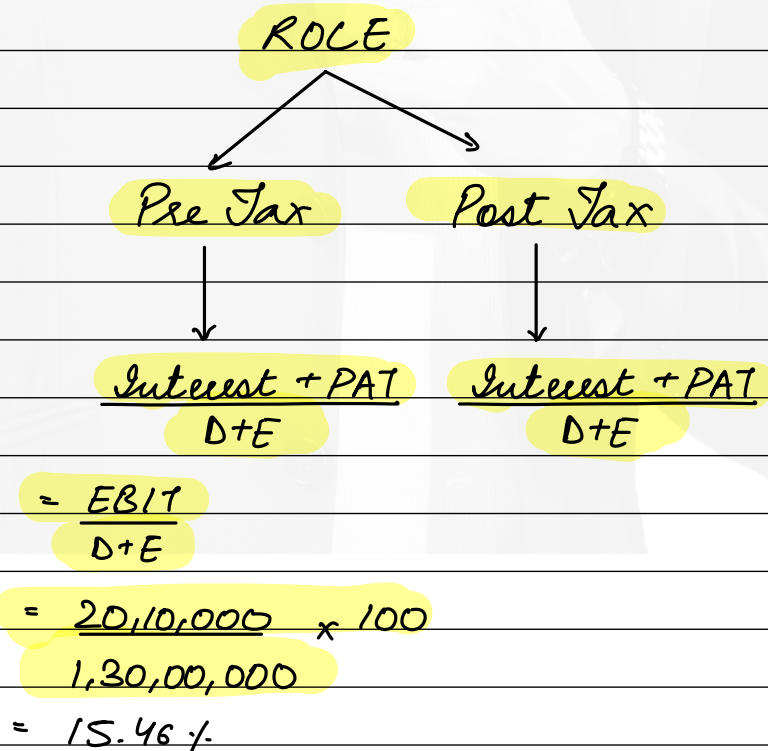 ROCE
Pre Tax Post Tax
Interest + PAT Interest + PAT
D+E D+E
= EBIT
D+E
= 20,10,000 x 100
1,30,00,000
= 15.46 %